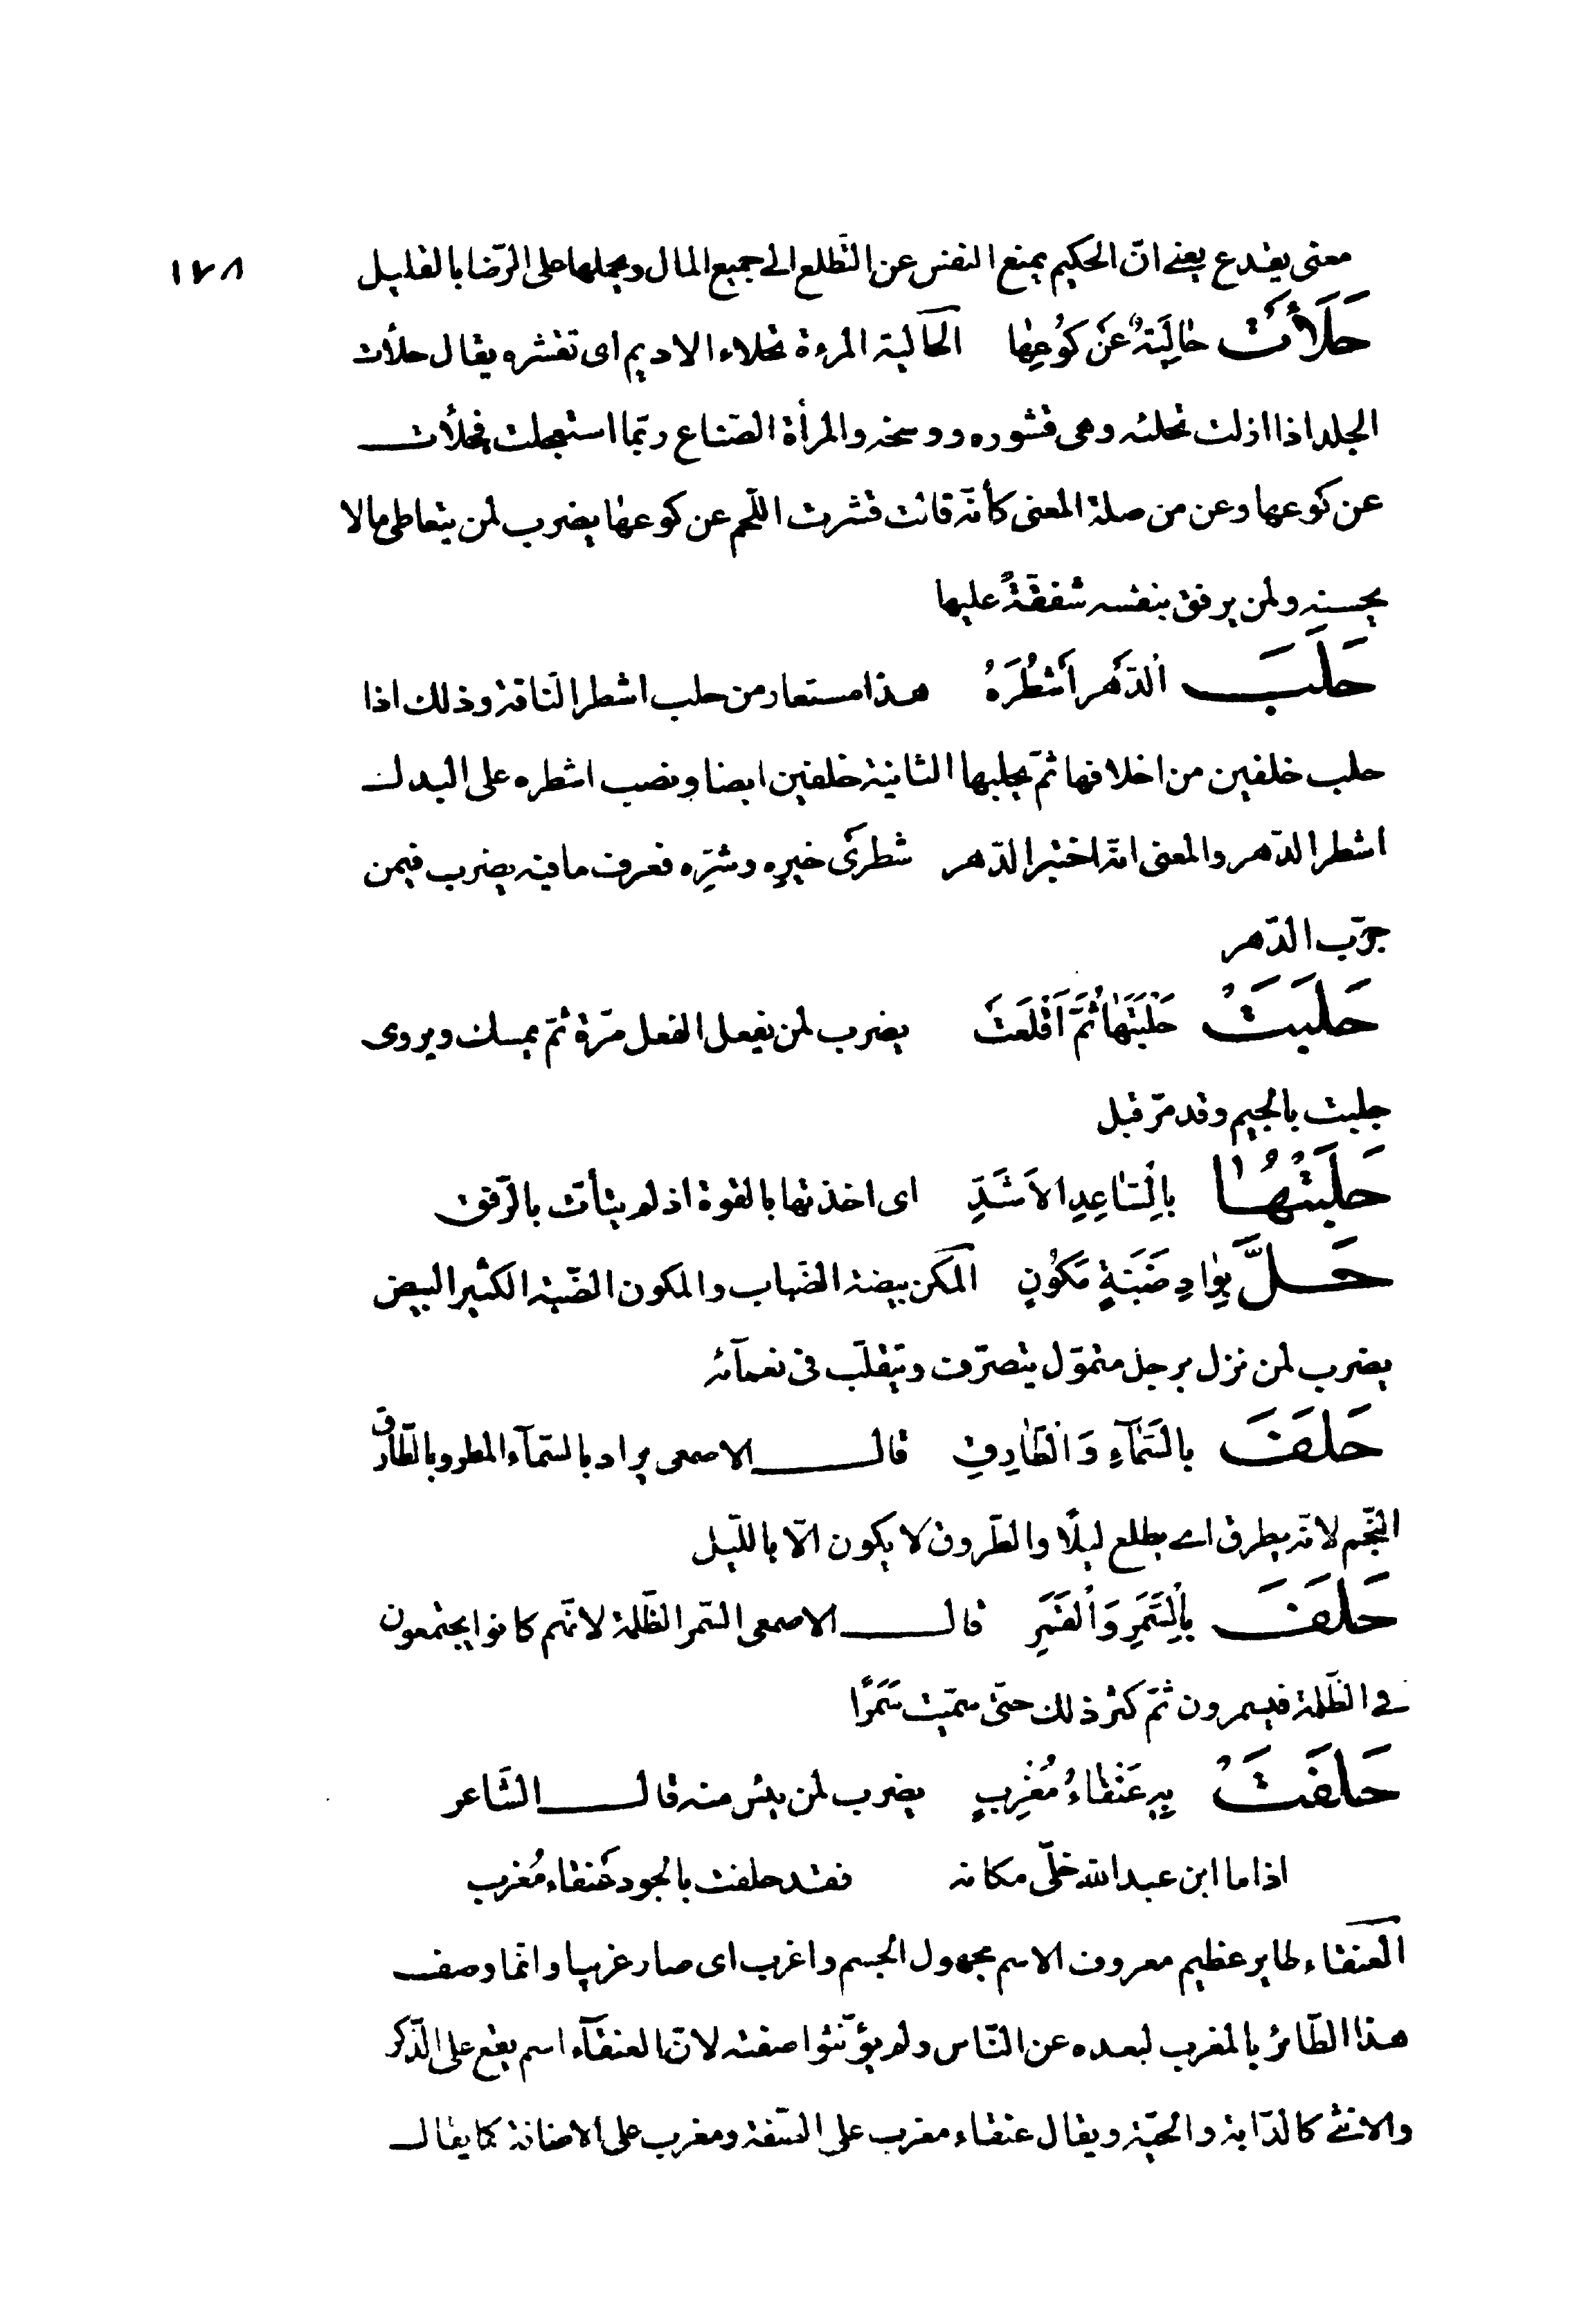 ١٧٨
معنى يقدع يعنے انّ الحكيم يمنع النفس عن التّطلع الى جميع المال ويحملها على الرّضا بالقليل
حَلَأَتْ حَالِيَةٌ عَنْ كُوعِهَا الحالية المرءة تحلاء الاديم اى تقشره يقال حلأت
الجلد اذا ازلت تحلئه وهى قشوره ووسخه والمرأة الصّناع ربّما استعجلت فحلأت
عن كوعها وعن من صلة المعنى كأنّه قالت قشرت اللّحم عن كوعها يضرب لمن يتعاطى مالا
يحسنه ولمن يرفق بنفسه شفقةً عليها
حَلَبَ الدَّهْرَ اَشْطُرَهُ هذا مستعار من حلب اشطر النّاقة وذلك اذا
حلب خلفين من اخلافها ثمّ يحلبها الثانية خلفين ايضا ونصب اشطره على البدل
اشطر الدّهر والمعنى انّه اختبر الدّهر شطرَى خيرِه وشرِّه فعرف ما فيه يضرب فيمن
جرّب الدّهر
حَلَبَتْ حَلْبَتَهَا ثُمَّ اَقْلَعَتْ يضرب لمن يفعل الفعل مرّة ثمّ يمسك ويروى
جلبت بالجيم وقد مرّ قبل
حَلَبْتُهَا بِالسَّاعِدِ الاَشَدِّ اى اخذتها بالقوة اذ لم يتأت بالرّفق
حَلَّ بِوَادٍ ضَبَّةٍ مَكُونٍ المكن بيضة الضّباب والمكون الضّبة الكثير البيض
يضرب لمن نزل برجل متموّل يتصرّف ويتقلّب فى نعمآئه
حَلَفَ بِالسَّمَآءِ وَالطَّارِقِ قال الاصمعى يراد بالسّمآء المطر وبالطّارق
النّجم لانّه يطرق اے يطلع ليلًا والطّروق لا يكون الّا باللّيل
حَلَفَ بِالسَّمَرِ وَالْقَمَرِ قال الاصمعى السّمر الظّلمة لانّهم كانوا يجتمعون
فے الظّلمة فيسمرون ثمّ كثر ذلك حتّى سمّيت سَمَرًا
حَلَّقَتْ بِهِ عَنْقَاءُ مُغْرِبٍ يضرب لمن يئس منه قال الشّاعر
اذا ما ابن عبد اللّه خلّى مكانه فقد حلقت بالجود عَنقاء مُغرب
العنقاء طاير عظيم معروف الاسم مجهول الجسم واغرب اى صار غريبا وانّما وصف
هذا الطّائر بالمغرب لبعده عن النّاس ولم يؤنّثوا صفته لانّ العنقآء اسم يقع على الذّكر
والانثے كالدّابة والحيّة ويقال عنقاء مغرب على الصّفة ومغرب على الاضافة كما يقال